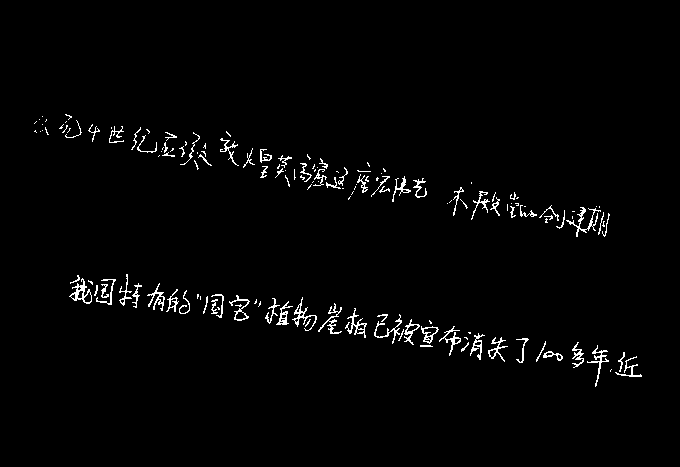 公元4世纪应该敦煌莫高窟这座宏伟艺术殿堂的创建期
我国特有的"国宝"植物崖柏已被宣布消失了100多年.近